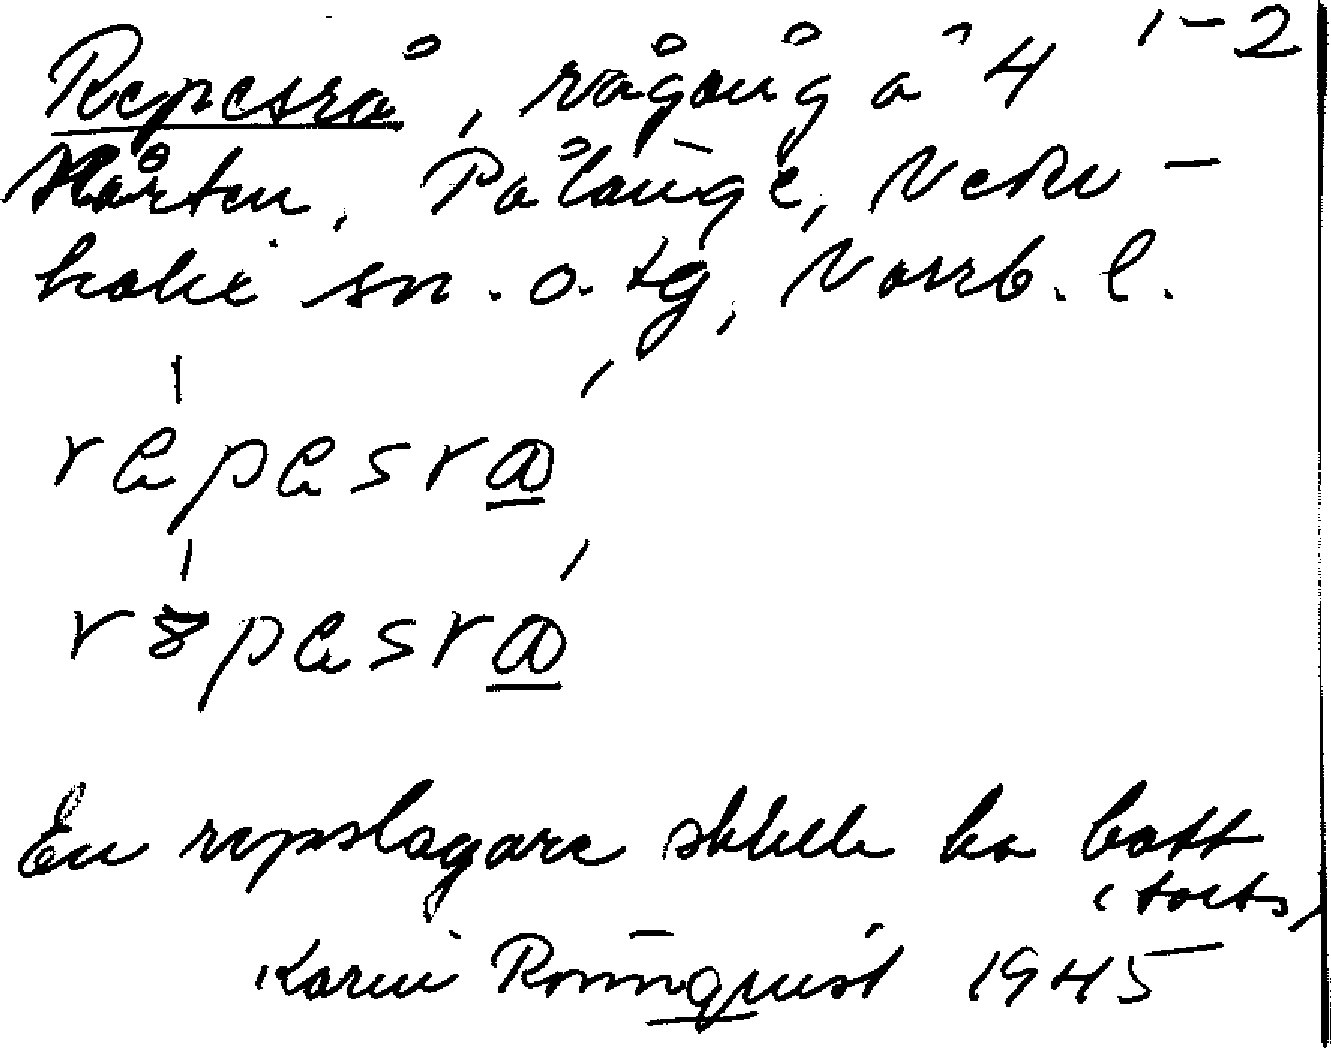 1-2
Repesrå, rågång å 4
Mårten, Pålänge, Neder-
kalix sn. o. tg, Norrb. l.
repesrå
repesrå
En repslagare skulle ha bott
(forts.)
Karin Rönnquist 1945